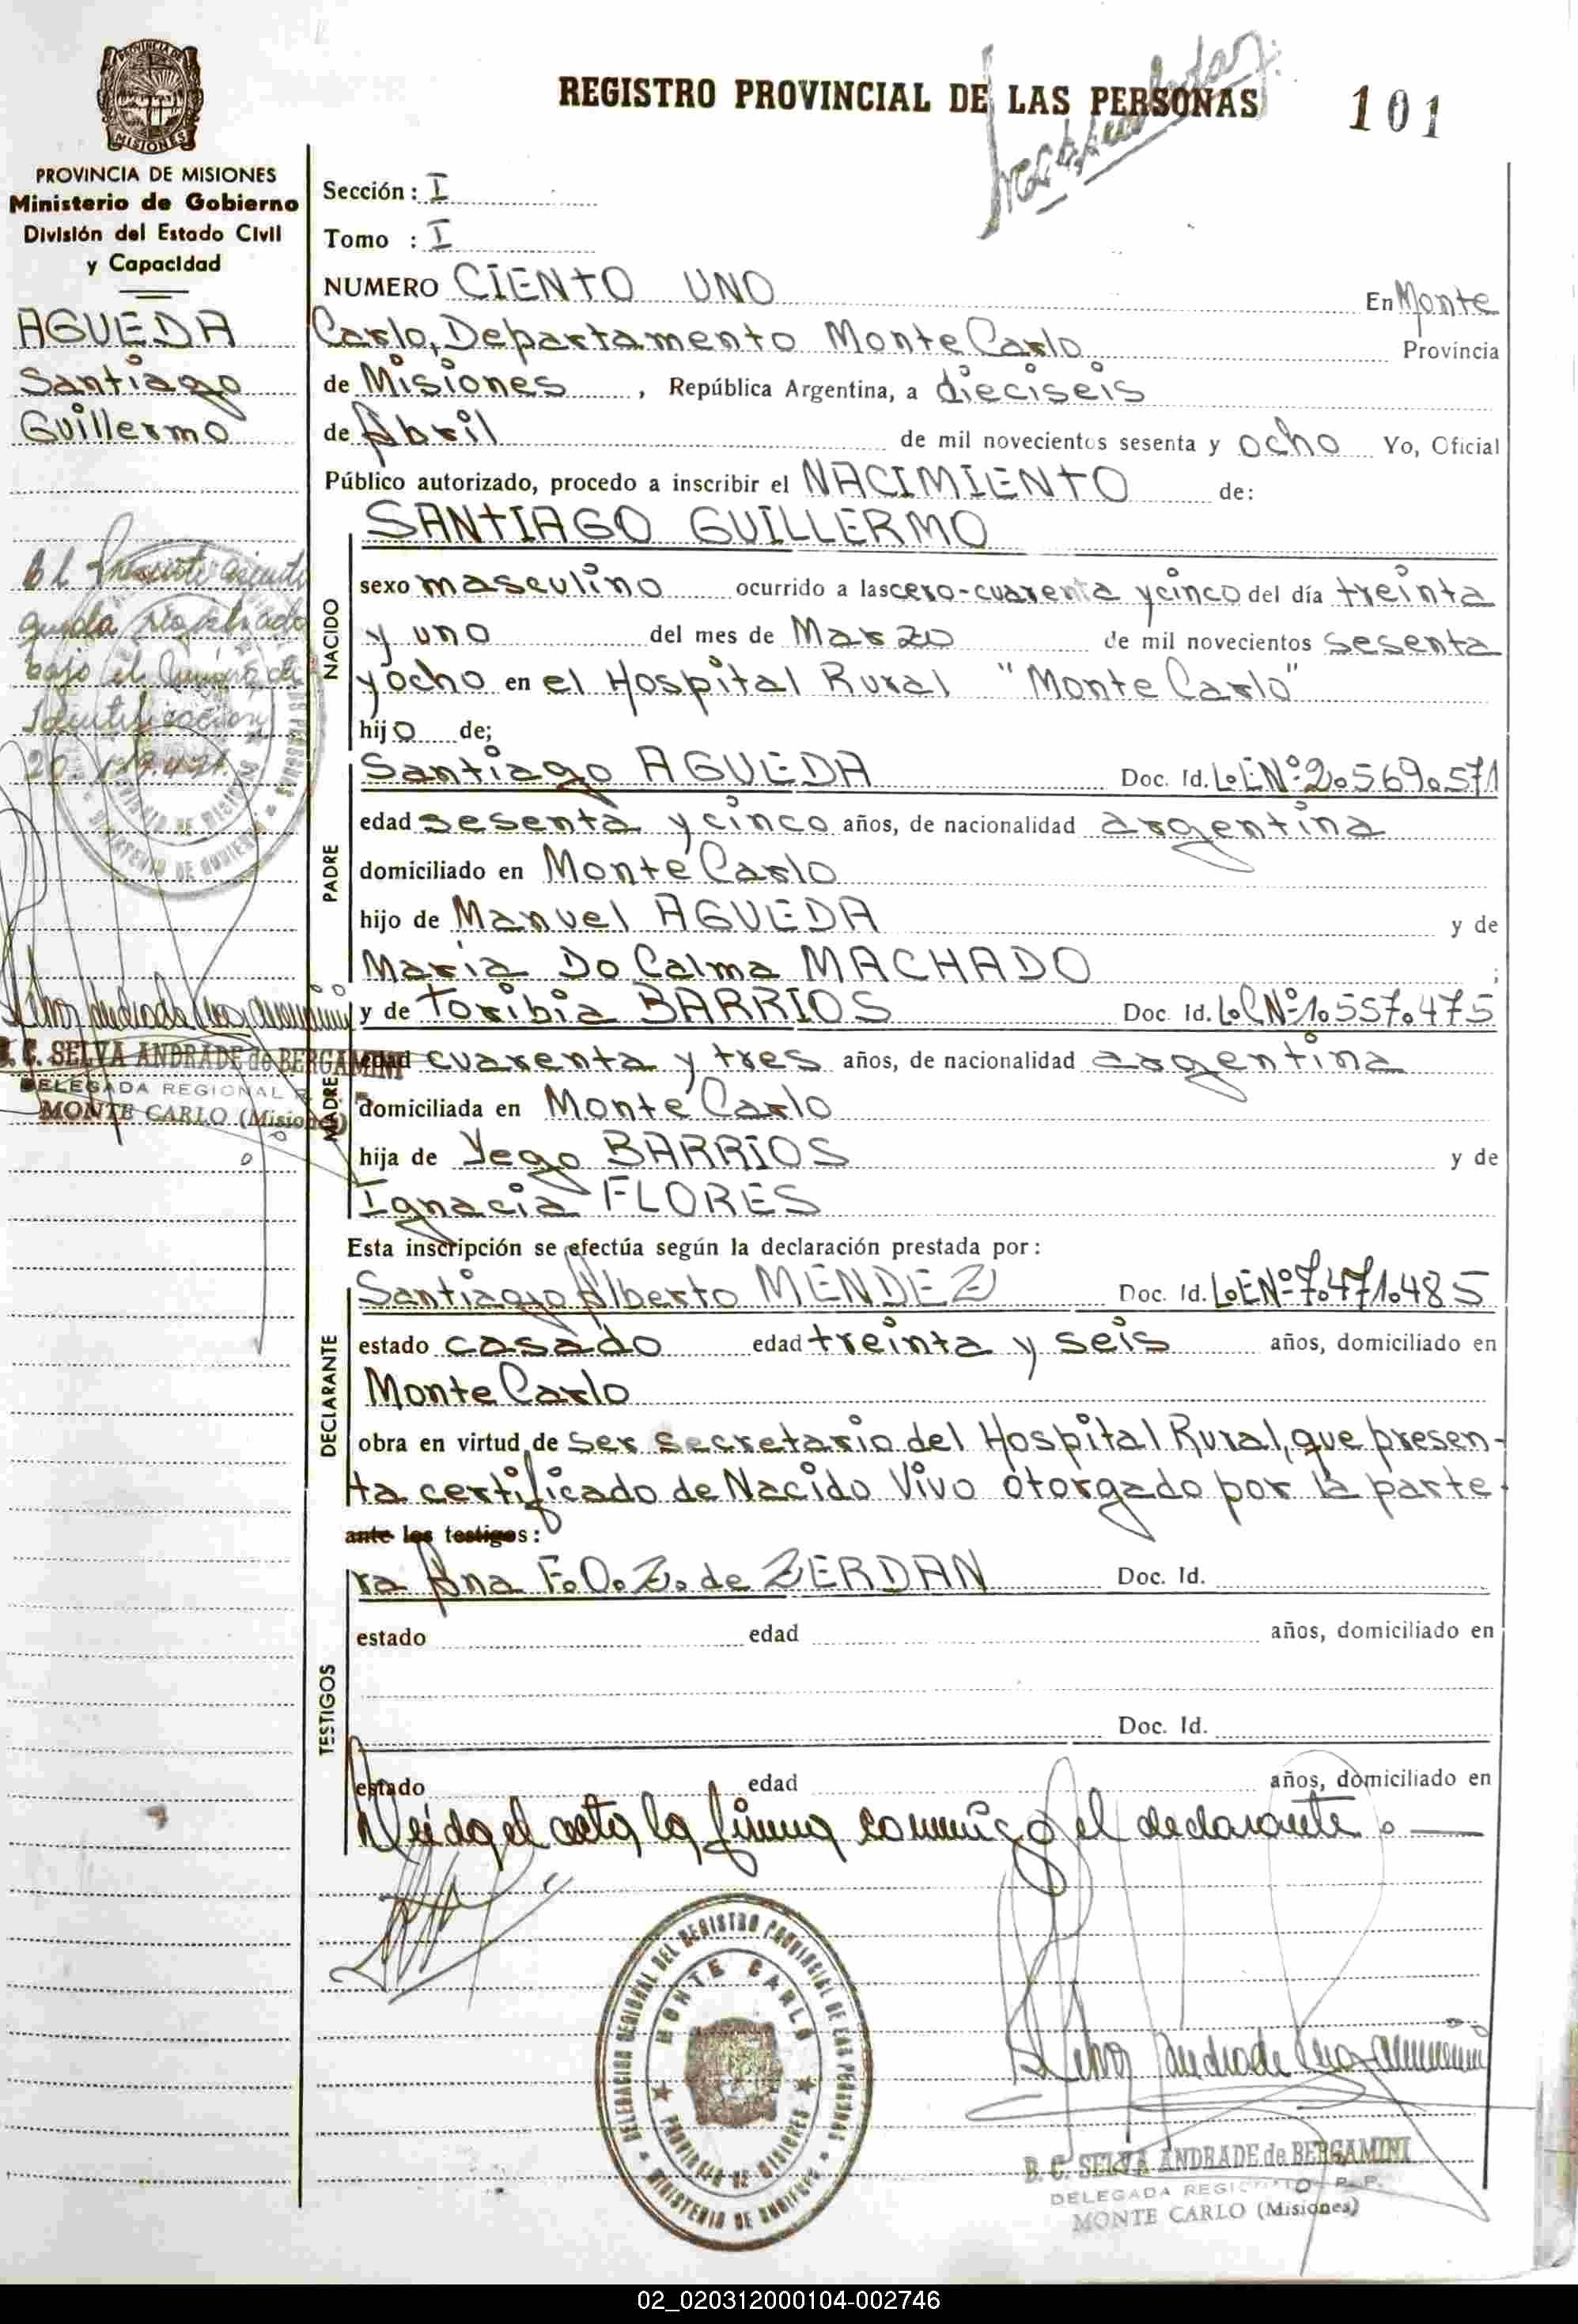 PROVINCIA DE MISIONES
REGISTRO PROVINCIAL DE LAS PERSONAS
101
PROVINCIA DE MISIONES
Ministerio de Gobierno
División del Estado Civil
y Capacidad
AGUEDA
Santiago
Guillermo
El presente asiento
queda registrado
bajo el Número de
Identificación
B. C. SELVA ANDRADE de BERGAMINI
DELEGADA REGIONAL
MONTE CARLO (Misiones)
Sección: I
Tomo : I
NUMERO CIENTO UNO En Monte
Carlo, Departamento Monte Carlo Provincia
de Misiones, República Argentina, a dieciseis
de Abril de mil novecientos sesenta y ocho Yo, Oficial
Público autorizado, procedo a inscribir el NACIMIENTO de:
NACIDO
SANTIAGO GUILLERMO
sexo masculino ocurrido a las cero-cuarenta y cinco del día treinta
y uno del mes de Marzo de mil novecientos sesenta
y ocho en el Hospital Rural "Monte Carlo"
hijo de;
PADRE
Santiago AGUEDA Doc. Id. L.E.Nº 2.569.571
edad sesenta y cinco años, de nacionalidad argentina
domiciliado en Monte Carlo
hijo de Manuel AGUEDA y de
Maria Do Calma MACHADO ;
MADRE
y de Toribia BARRIOS Doc. Id. L.C.Nº 1.557.475
edad cuarenta y tres años, de nacionalidad argentina
domiciliada en Monte Carlo
hija de Yego BARRIOS y de
Ignacia FLORES
Esta inscripción se efectúa según la declaración prestada por:
DECLARANTE
Santiago Alberto MENDEZ Doc. Id. L.E.Nº 7.471.485
estado casado edad treinta y seis años, domiciliado en
Monte Carlo
obra en virtud de ser secretario del Hospital Rural, que presen-
ta certificado de Nacido Vivo otorgado por la parte-
ante los testigos:
TESTIGOS
ra Ana F.O.Z. de ZERDAN Doc. Id.
estado edad años, domiciliado en
Doc. Id.
estado edad años, domiciliado en
Leida el acta la firma conmigo el declarante.—
DELEGACION REGIONAL DEL REGISTRO PROVINCIAL DE LAS PERSONAS
MONTE CARLO
PROVINCIA DE MISIONES
MINISTERIO DE GOBIERNO
B. C. SELVA ANDRADE de BERGAMINI
DELEGADA REGIONAL R. P. P.
MONTE CARLO (Misiones)
02_020312000104-002746